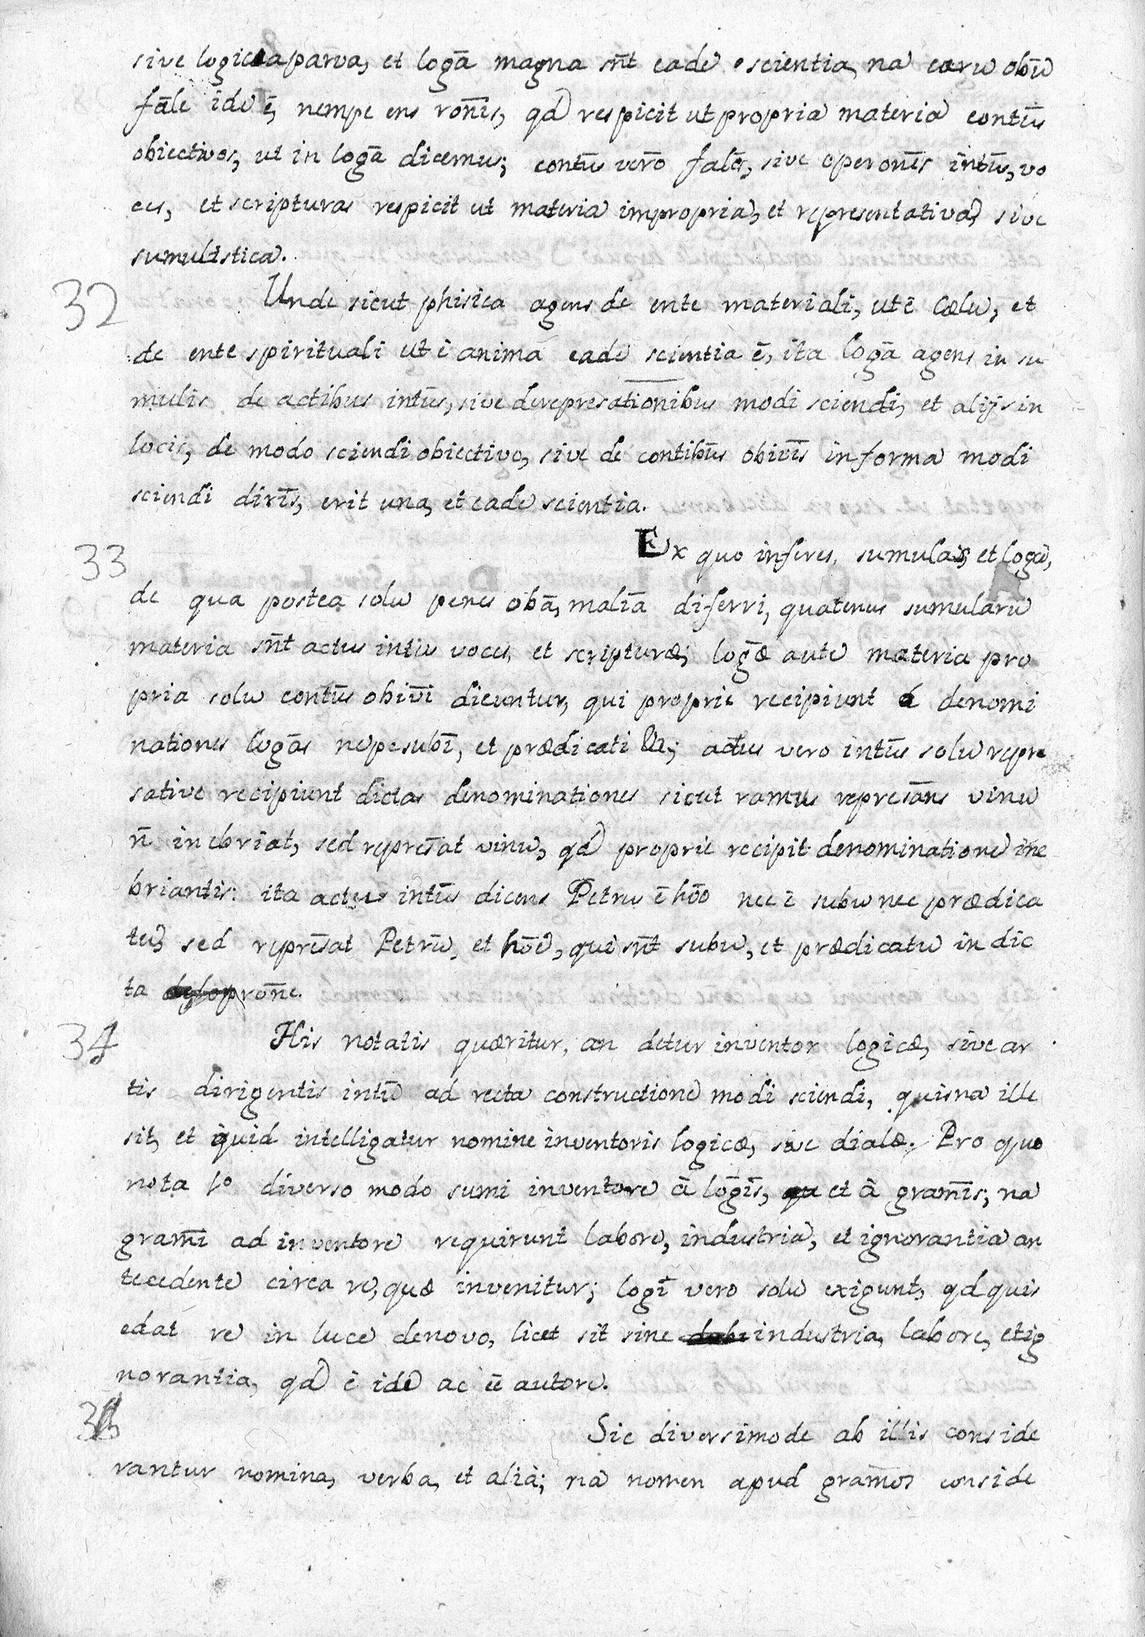 sive logica parva, et logā magna sn̄t eadē scientia, nā earū obiū
fāle idē ē, nempe ens ronīs, qd respicit ut propriā materiā contūs
obiectivos, ut in logā dicemus; contūs vero fales, sive operonēs intūs, vo
ces, et scripturas respicit ut materiā impropriā, et representativā, sive
sumulistica.
32 Unde sicut phisica agens de ente materiali, ut ē cœlū, et
de ente spirituali ut ē anima eadē scientia ē, ita logā agens in su
mulis de actibus intūs, sive de represationibus modi sciendi, et alijs in
locis, de modo sciendi obiectivo, sive de contibūs obivīs in forma modi
sciendi dirīs, erit una, et eadē scientia.
33 Ex quo inferes, sumulas, et logā,
de qua postea solū penes obā, maliā diferri, quatenus sumularū
materia sn̄t actus intūs voces, et scripturæ; logæ autē materia pro
pria solū contūs obivī dicuntur, qui proprie recipiunt denomi
nationes logās nēpe subī, et prædicati &c; actus vero intūs solū repre
sative recipiunt dictas denominationes sicut ramus represāns vinū
n̄ inebriat, sed represāt vinū, qd proprie recipit denominationē ine
briantis: ita actus intūs dicens Petrus ē hōo nec ē subū nec prædica
tū, sed represāt Petrū, et hōē, qui sn̄t subū, et prædicatū in dic
ta pronē.
34 His notatis quæritur, an detur inventor logicæ, sive ar
tis dirigentis intū ad rectā constructionē modi sciendi, quisnā ille
sit, et quid intelligatur nomine inventoris logicæ, sive dialæ. Pro quo
nota 1o diverso modo sumi inventore à logīs, et à gramīs; nā
gramī ad inventorē requirunt laborē, industriā, et ignorantiā an
tecedentē circa rē, quæ invenitur; logī vero solū exigunt, qd quis
edat rē in lucē denovo, licet sit sine industria, labore, et ig
norantia, qd ē idē ac ēē autorē.
Sic diversimode ab illis conside
rantur nomina, verba, et alia; nā nomen apud gramōs conside